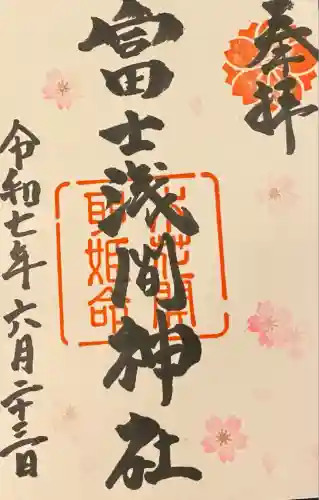 奉拝
冨士浅間神社
木花開
耶姫命
令和七年六月二十三日